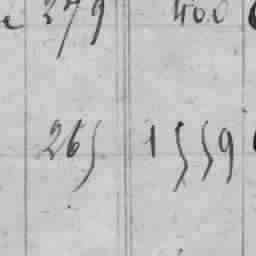 279 400
265 1559